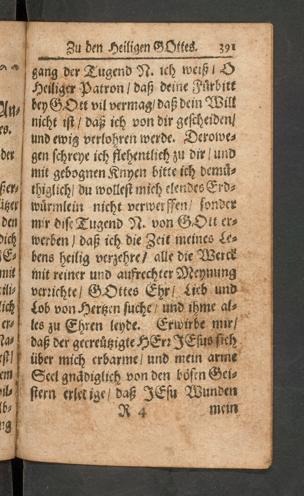 Zu den Heiligen GOttes. 391
gang der Tugend N. ich weiß / O
Heiliger Patron / daß deine Fürbitt
bey GOtt vil vermag / daß dein Will
nicht ist / daß ich von dir gescheiden /
und ewig verlohren werde. Derowe-
gen schreye ich flehentlich zu dir / und
mit gebognen Knyen bitte ich demü-
thiglich / du wollest mich elendes Erd-
würmlein nicht verwerffen / sonder
mir dise Tugend N. von GOtt er-
werben / daß ich die Zeit meines Le-
bens heilig verzehre / alle die Werck
mit reiner und auffrechter Meynung
verrichte / GOttes Ehr / Lieb und
Lob von Hertzen suche / und ihme al-
les zu Ehren leyde. Erwirbe mir /
daß der gecreützigte HErr JEsus sich
über mich erbarme / und mein arme
Seel gnädiglich von den bösen Gei-
stern erledige / daß JEsu Wunden
R 4 mein